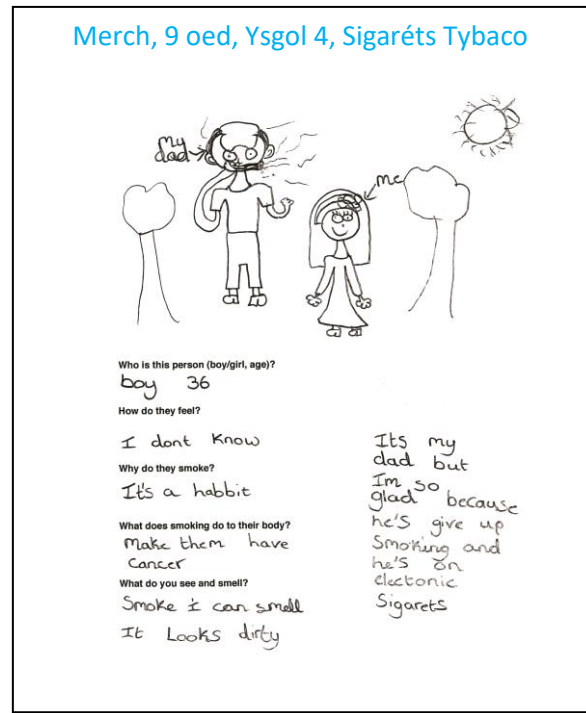 Merch, 9 oed, Ysgol 4, Sigaréts Tybaco
My
dad
Me
Who is this person (boy/girl, age)?
boy 36
How do they feel?
I dont know
Why do they smoke?
It's a habbit
What does smoking do to their body?
Make them have
cancer
What do you see and smell?
Smoke i can smell
It Looks dirty
Its my
dad but
Im so
glad because
he's give up
Smoking and
he's on
electonic
Sigarets